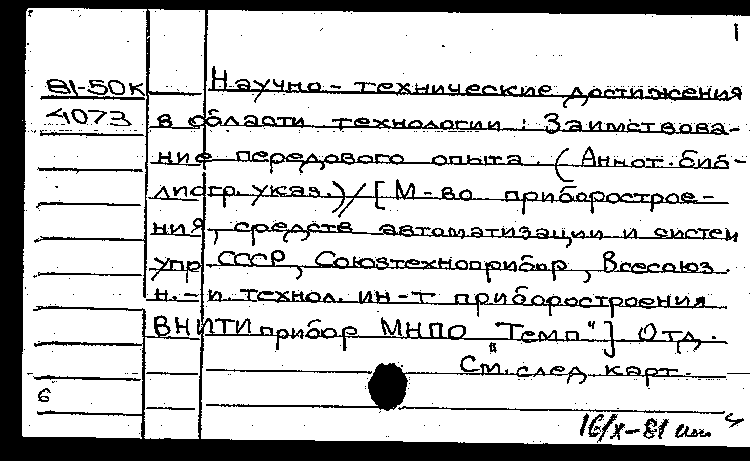 1
81-50к Научно-технические достижения
4073 в области технологии: Заимствова-
ние передового опыта. (Аннот. биб-
лиогр. указ.)/[М-во приборострое-
ния, средств автоматизации и систем
упр СССР, Союзтехноприбор, Всесоюз.
н.-и. технол. ин-т приборостроения
ВНИТИприбор МНПО "Темп"] Отд.
См. след карт.
6
16/X-81